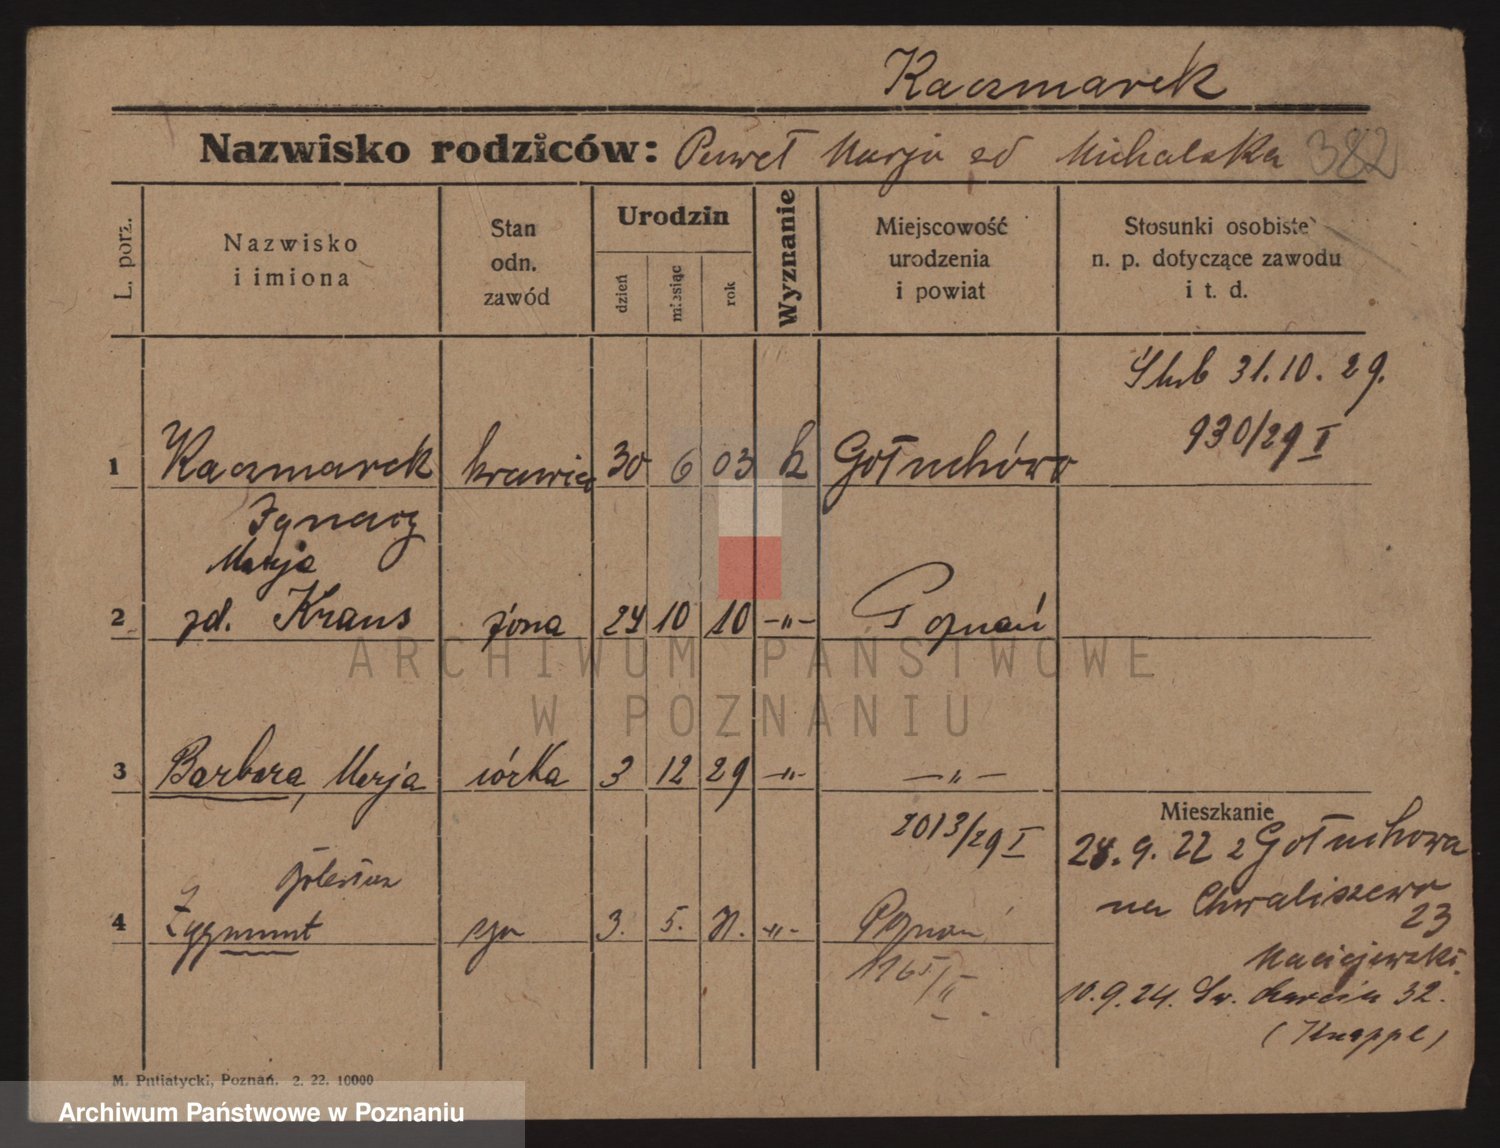 Kaczmarek
Nazwisko rodziców: Paweł Marja zd Michalska 382
L. porz.
Nazwisko i imiona
Stan odn. zawód
Urodzin
dzień
miesiąc
rok
Wyznanie
Miejscowość urodzenia i powiat
Stosunki osobiste n. p. dotyczące zawodu i t. d.
Ślub 31.10.29.
930/29 I
1 Kaczmarek krawiec 30 6 03 k Gołuchów
Ignacy
Marja
2 zd. Kraus żona 24 10 10 -"- Poznań
3 Barbara, Marja córka 3 12 29 -"- -"-
2013/29 I
Mieszkanie
28.9.22 z Gołuchowa
na Chwaliszewo
23
Maciejewski.
4 Zygmunt syn 3. 5. -"- Poznań
10.9.24. Św. Marcin 32.
(Knappe)
M. Putiatycki, Poznań. 2. 22. 10000
ARCHIWUM PAŃSTWOWE
W POZNANIU
Archiwum Państwowe w Poznaniu